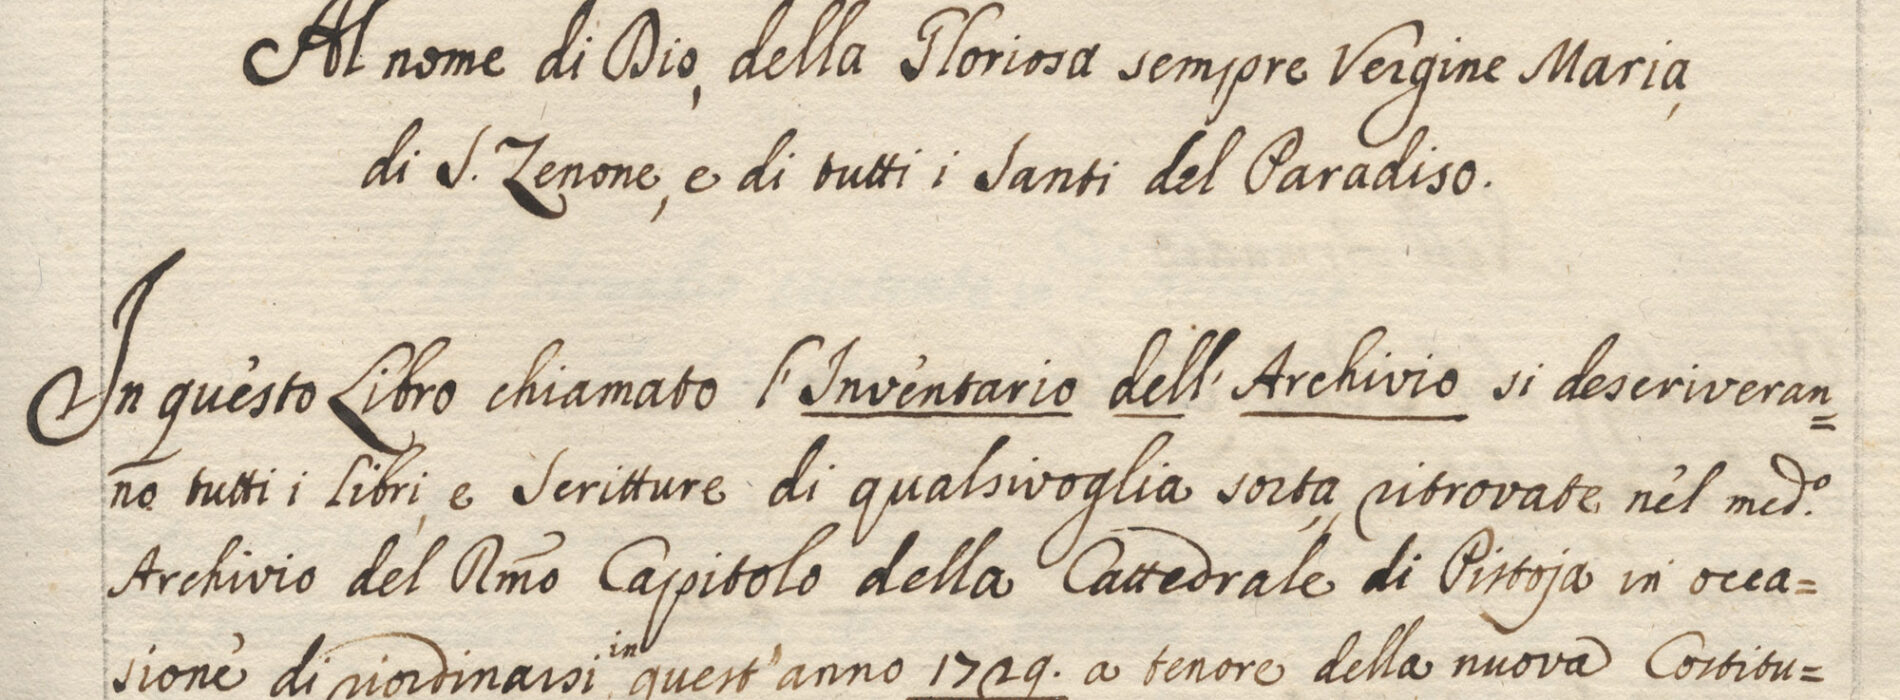 Al nome di Dio, della Gloriosa sempre Vergine Maria,
di S. Zenone, e di tutti i Santi del Paradiso.
In questo Libro chiamato l'Inventario dell'Archivio si descriveran=
no tutti i libri, e Scritture di qualsivoglia sorta, ritrovate nel med.º
Archivio del Rmo Capitolo della Cattedrale di Pistoja in occa=
sione di riordinarsi in quest'anno 1729. a tenore della nuova Costitu=